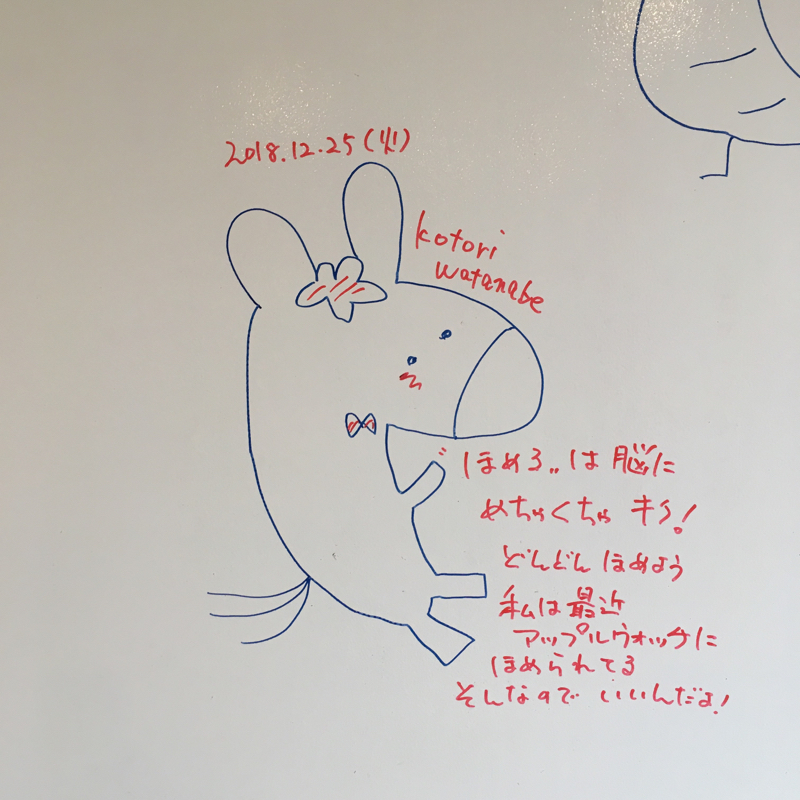 2018.12.25(火)
kotori
watanabe
"ほめる"は脳に
めちゃくちゃ キク!
どんどん ほめよう
私は最近
アップルウォッチに
ほめられてる
そんなので いいんだよ!